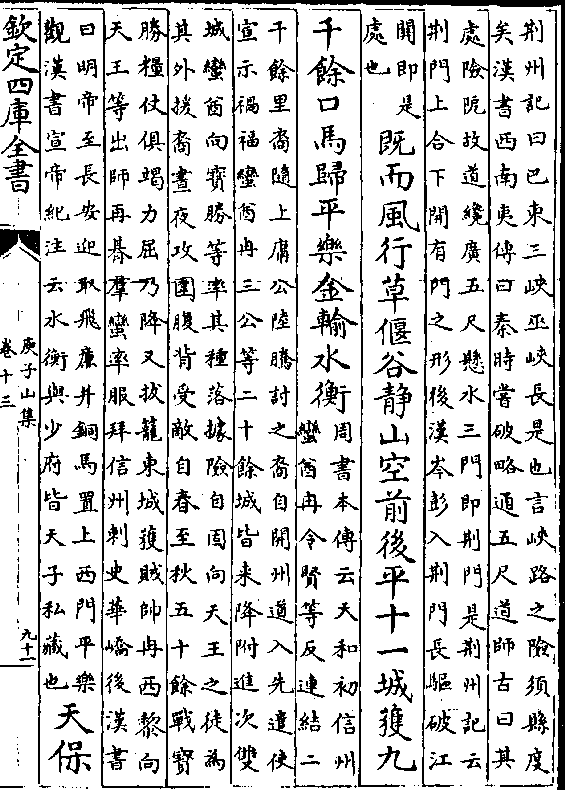 荆州記曰巴東三峽巫峽長是也言峽路之險須縣度
矣漢書西南夷傳曰秦時嘗破略通五尺道師古曰其
處險阨故道纔廣五尺懸水三門即荆門是荆州記云
荆門上合下開有門之形後漢岑彭入荆門長驅破江
關即是
處也
既而風行草偃谷静山空前後平十一城獲九
千餘口馬歸平樂金輸水衡
周書本傳云天和初信州
蠻酋冉令賢等反連結二
千餘里裔隨上庸公陸騰討之裔自開州道入先遣使
宣示禍福蠻酋冉三公等二十餘城皆来降附進次雙
城蠻酋向寶勝等率其種落據險自固向天王之徒為
其外援裔晝夜攻圍腹背受敵自春至秋五十餘戰寶
勝糧仗俱竭力屈乃降又拔籠東城獲賊帥冉西黎向
天王等出師再朞羣蠻率服拜信州刺史華嶠後漢書
曰明帝至長安迎取飛廉并銅馬置上西門平樂
觀漢書宣帝紀注云水衡與少府皆天子私藏也
天保
欽定四庫全書
庾子山集
卷十三
九十一